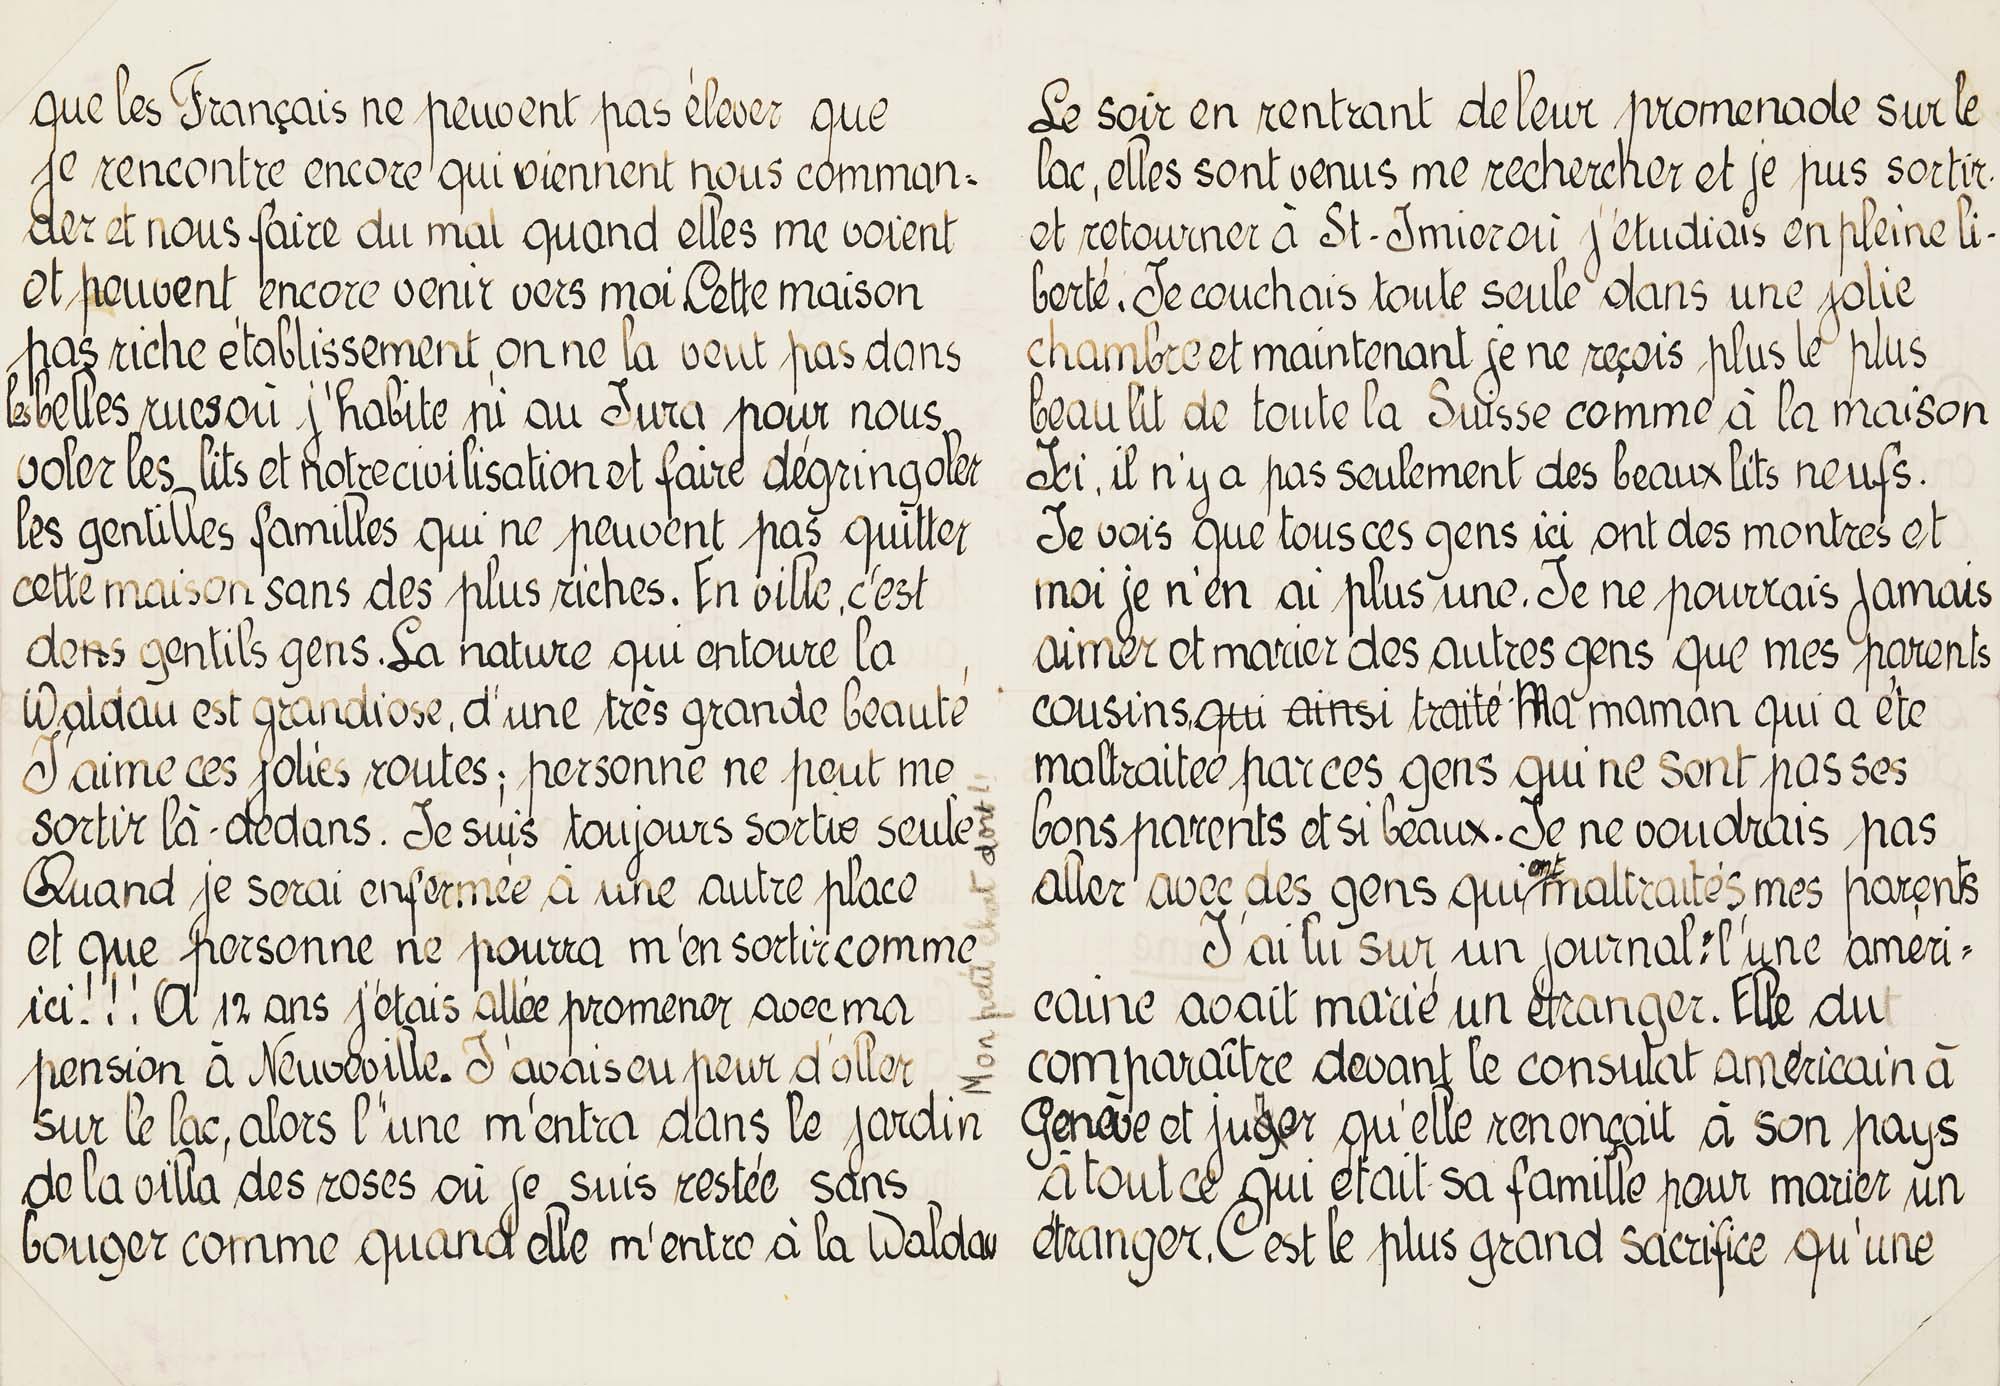 que les Français ne peuvent pas élever que
je rencontre encore qui viennent nous comman=
der et nous faire du mal quand elles me voient
et peuvent encore venir vers moi. Cette maison
pas riche établissement on ne la veut pas dans
les belles rues où j'habite ni au Jura pour nous
voler les lits et notre civilisation et faire dégringoler
les gentilles familles qui ne peuvent pas quitter
cette maison sans des plus riches. En ville, c'est
dens gentils gens. La nature qui entoure la
Waldau est grandiose, d'une très grande beauté
J'aime ces jolies routes; personne ne peut me
sortir là-dedans. Je suis toujours sortie seule
Quand je serai enfermée à une autre place
et que personne ne pourra m'en sortir comme
ici!!! A 12 ans j'étais allée promener avec ma
pension à Neuveville. J'avais eu peur d'aller
sur le lac, alors l'une m'entra dans le jardin
de la villa des roses où je suis restée sans
bouger comme quand elle m'entre à la Waldau
Mon petit chat dort!!
Le soir en rentrant de leur promenade sur le
lac, elles sont venus me rechercher et je pus sortir.
et retourner à St-Imier où j'étudiais en pleine li-
berté. Je couchais toute seule dans une jolie
chambre et maintenant je ne reçois plus le plus
beau lit de toute la Suisse comme à la maison
Ici, il n'y a pas seulement des beaux lits neufs.
Je vois que tous ces gens ici ont des montres et
moi je n'en ai plus une. Je ne pourrais jamais
aimer et marier des autres gens que mes parents
cousins, qui ainsi traité Ma maman qui a été
maltraitée par ces gens qui ne sont pas ses
bons parents et si beaux. Je ne voudrais pas
aller avec des gens qui ont maltraités mes parents
J'ai lu sur un journal: l'une améri=
caine avait marié un étranger. Elle dut
comparaître devant le consulat américain à
Genève et juger qu'elle renonçait à son pays
à tout ce qui était sa famille pour marier un
étranger. C'est le plus grand sacrifice qu'une